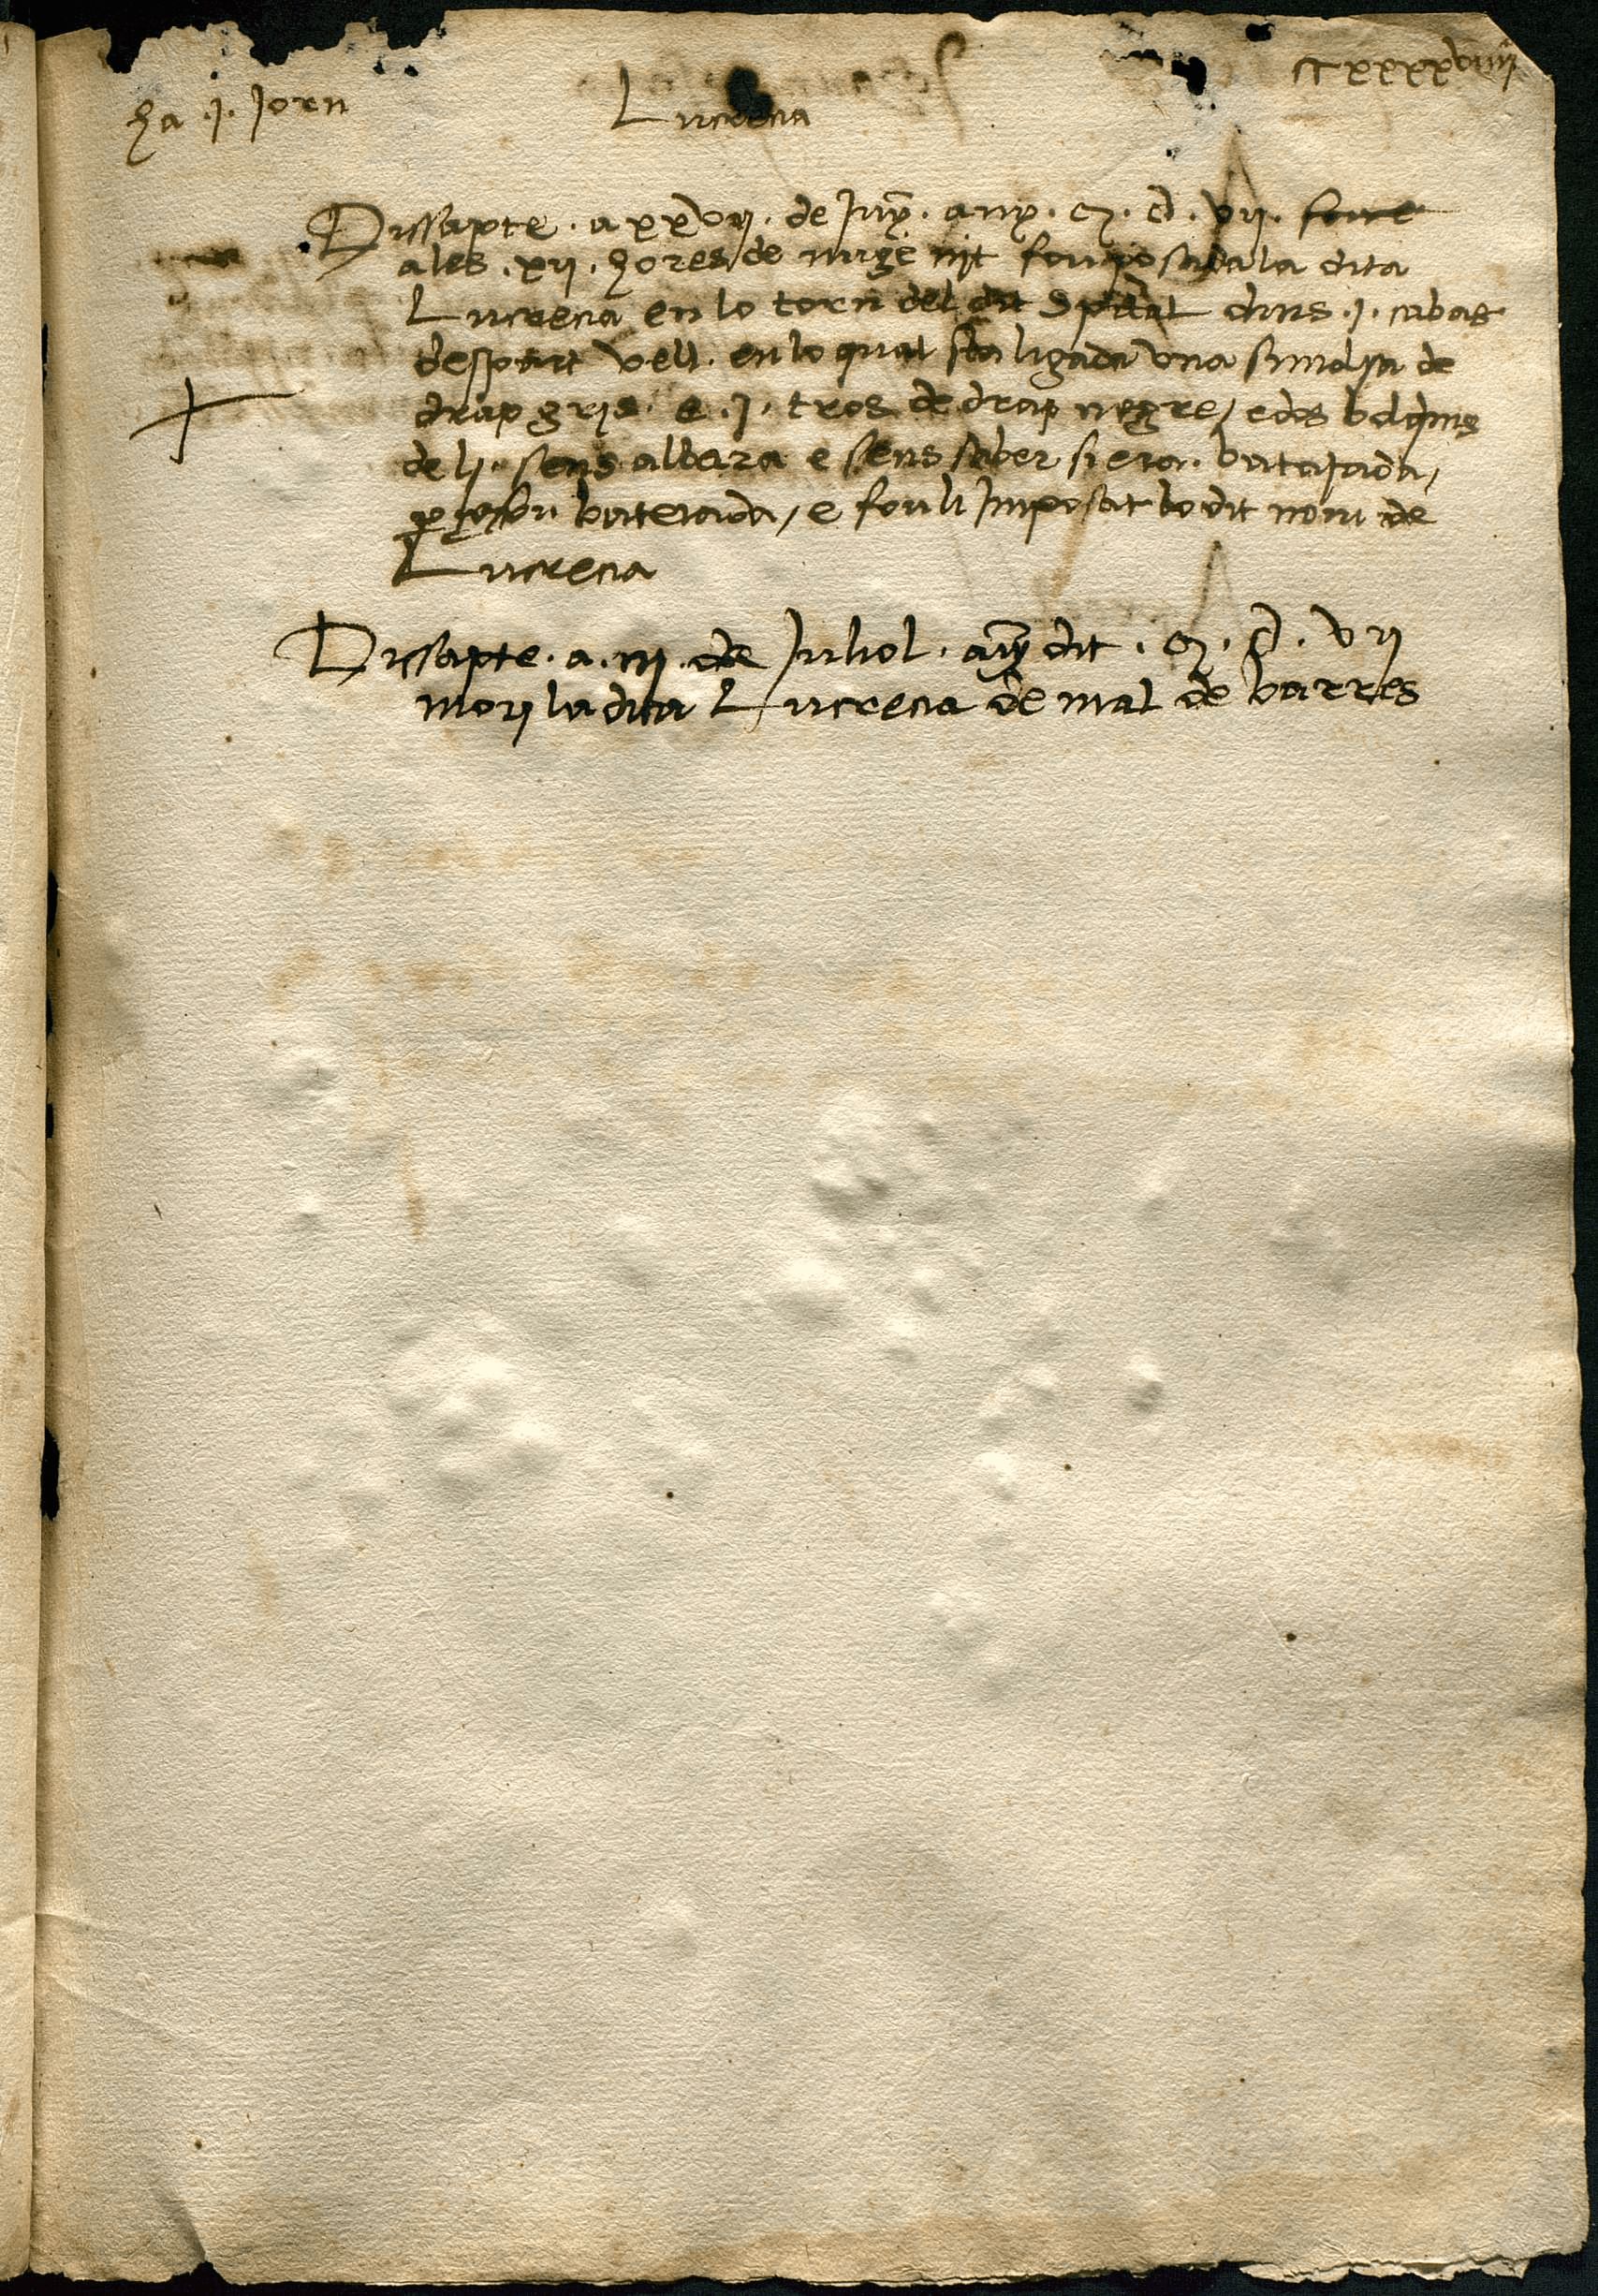 ha .j. jorn
Lucrecia
CCxxxxviiij
Dissapte . a xxvij . de juny . any . M . D . vij . fonc
a les . xij . hores de mige nit fou posada la dita
Lucrecia en lo torn del dit Spital dins .j. cabas
despart vell . en lo qual sta ligada una de
drap gris . e .j. tros de drap negre / e dos bolquins
de li . sens albara e sens saber si era . batejada /
batejada / e fou li imposat lo dit nom de
Lucrecia
Dissapte . a . iij . de Juliol . any dit . M . D . vij
mori la dita Lucrecia de mal de barres